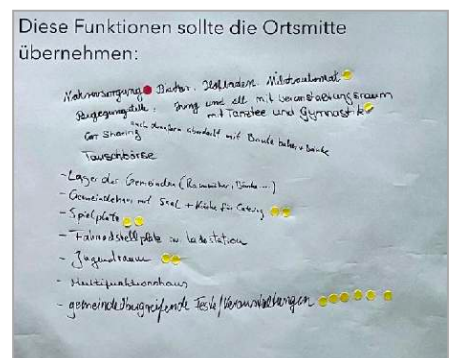 Diese Funktionen sollte die Ortsmitte
übernehmen:
Nahversorgung Bäcker. Hofladen. Milchautomat
Begegnungsstätte. Jung und alt mit Veranstaltungsraum
mit Tanztee und Gymnastik
Car Sharing
Tauschbörse
- Lager der Gemeinden (
- Gemeindehaus mit Saal + Küche für Catering
- Spielplatz
- Fahrradstellplätze Ladestation
- Jugendraum
- Multifunktionshaus
- gemeindeübergreifende Feste/Veranstaltungen